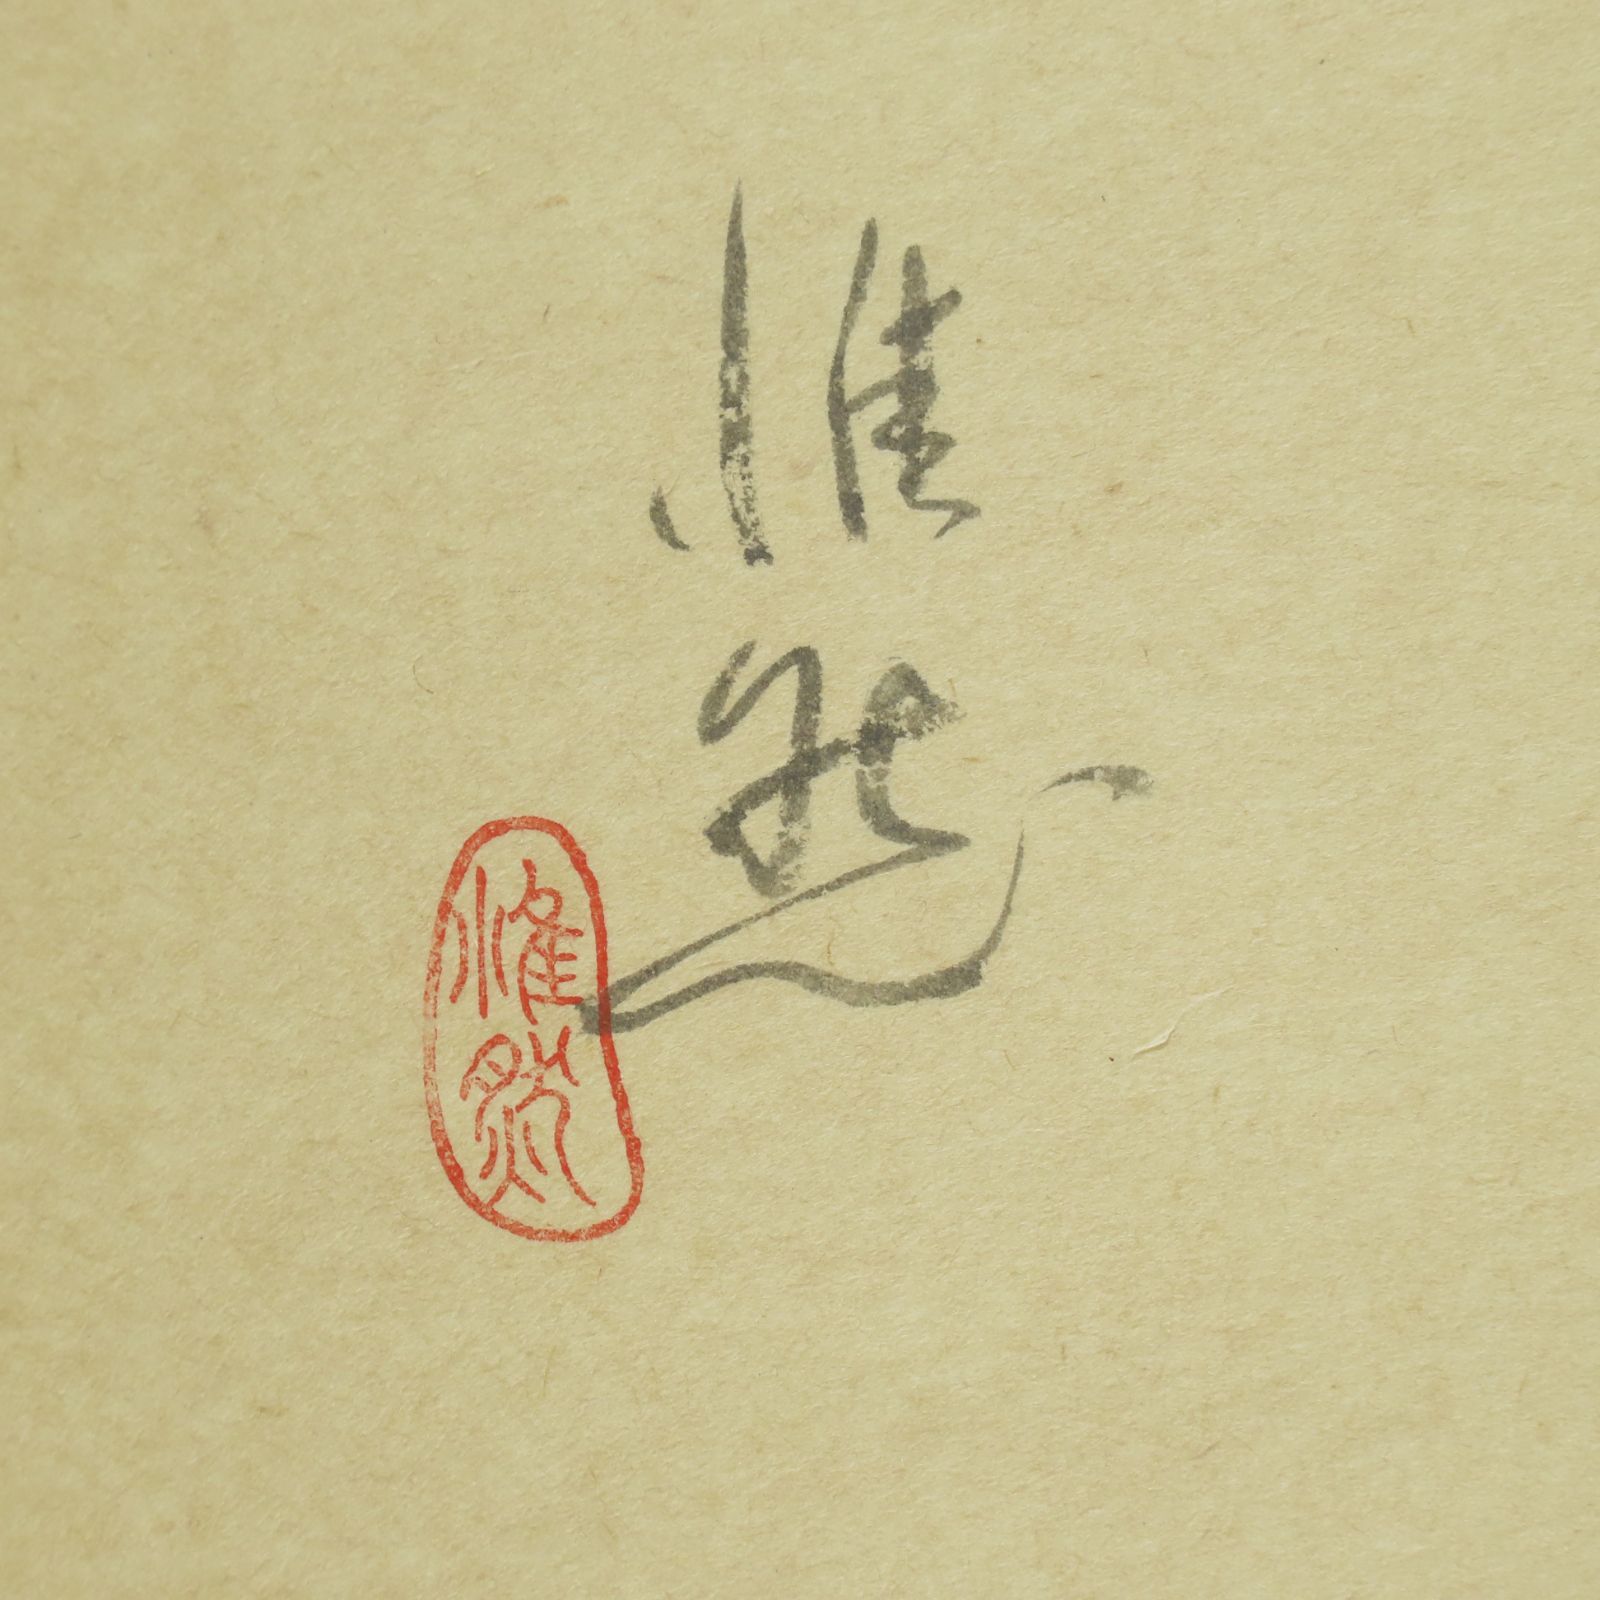 惟然
惟然